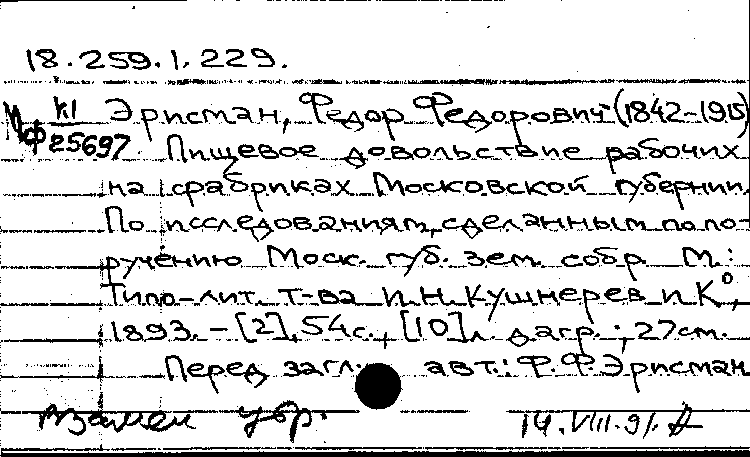 18.259.1.229.
Мф К1/25697 Эрисман, Федор Федорович (1842-1915)
Пищевое довольствие рабочих
на фабриках Московской губернии.
По исследованиям, сделанным по по-
ручению Моск. губ. зем. собр. М.:
Типо-лит. т-ва И.Н.Кушнерев и К°,
1893. - [2], 54с., [10]л. диагр.; 27см.
Перед загл. авт.: Ф.Ф.Эрисман
Взамен убр. 14.VIII.91.